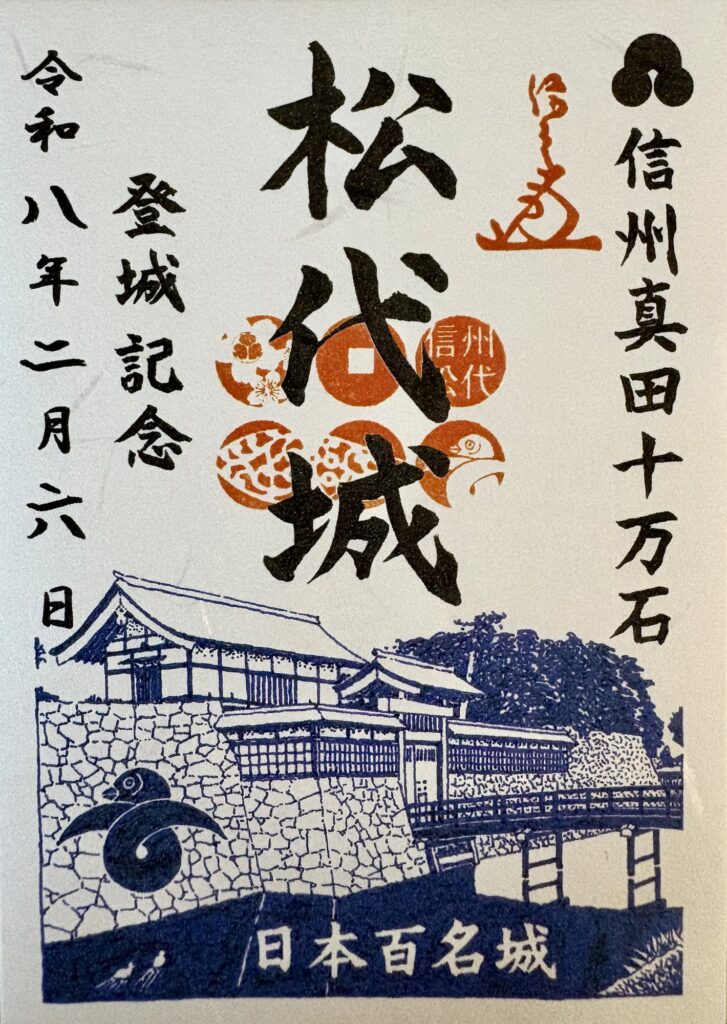 信州真田十万石
松代城
信州
松代
登城記念
令和八年二月六日
日本百名城